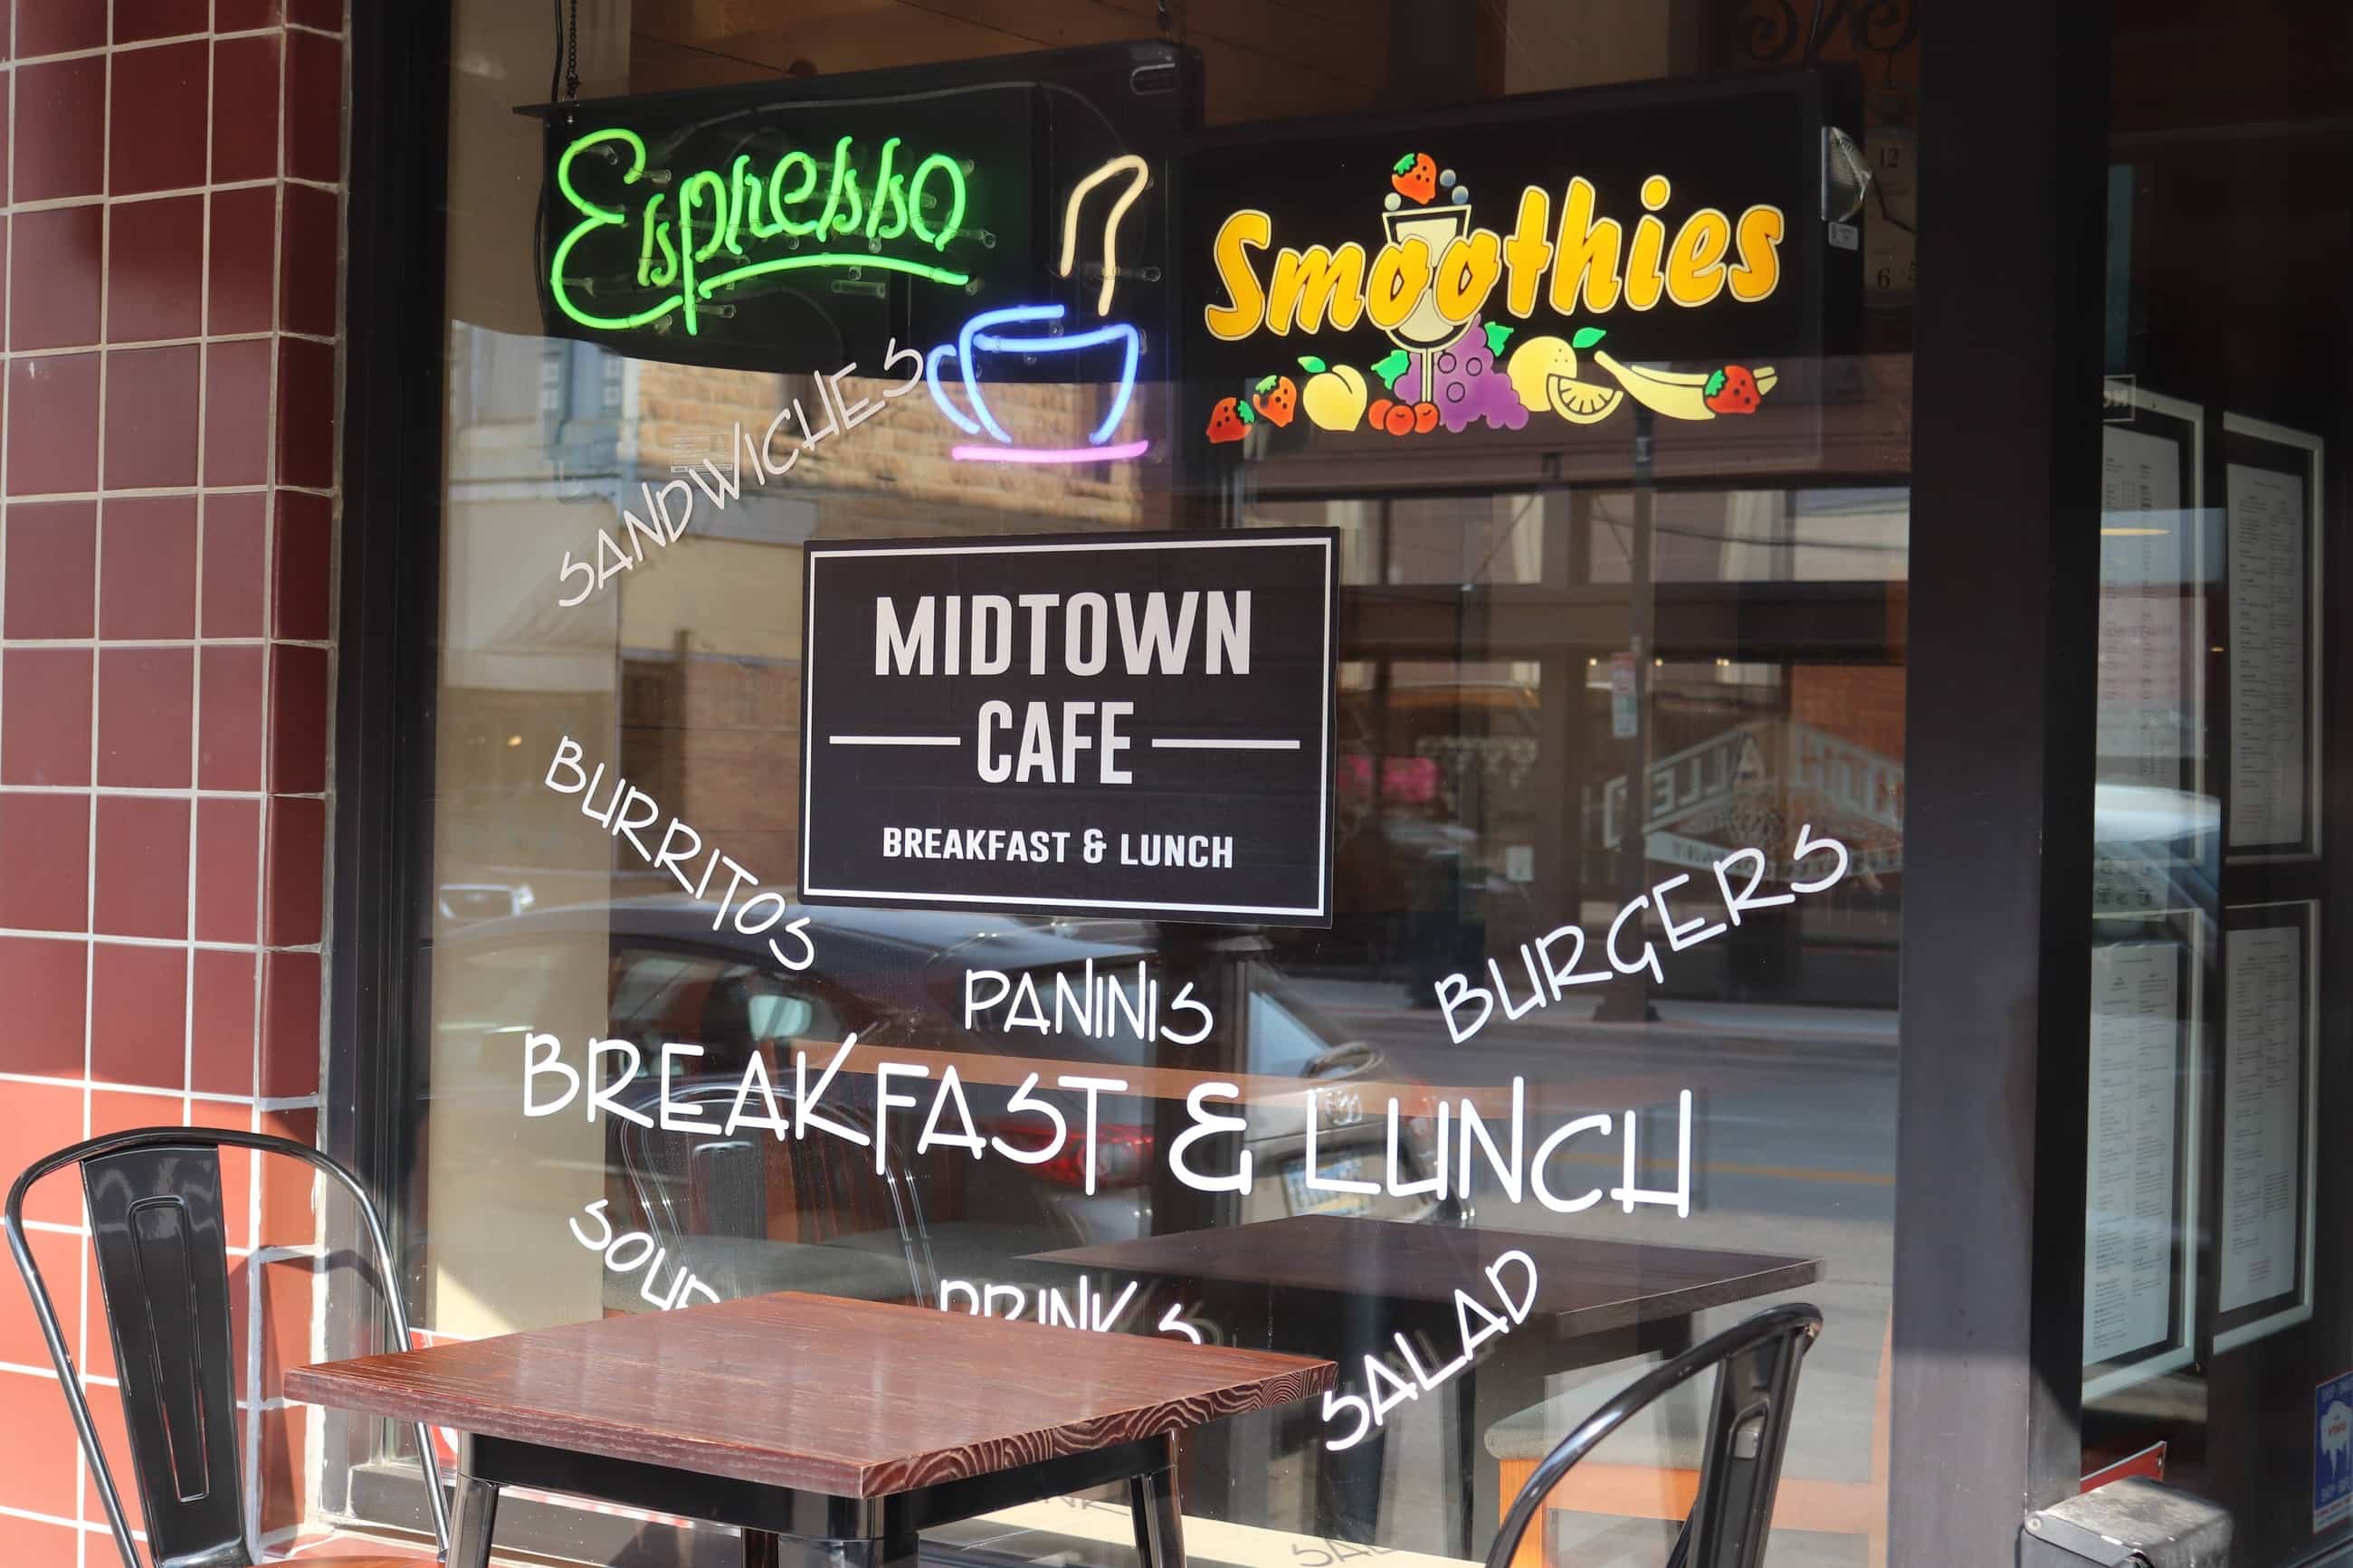 Espresso
Smoothies
SANDWICHES
MIDTOWN
CAFE
BREAKFAST & LUNCH
BURRITOS
PANINIS
BURGERS
BREAKFAST & LUNCH
SOUP
DRINKS
SALAD
12
6